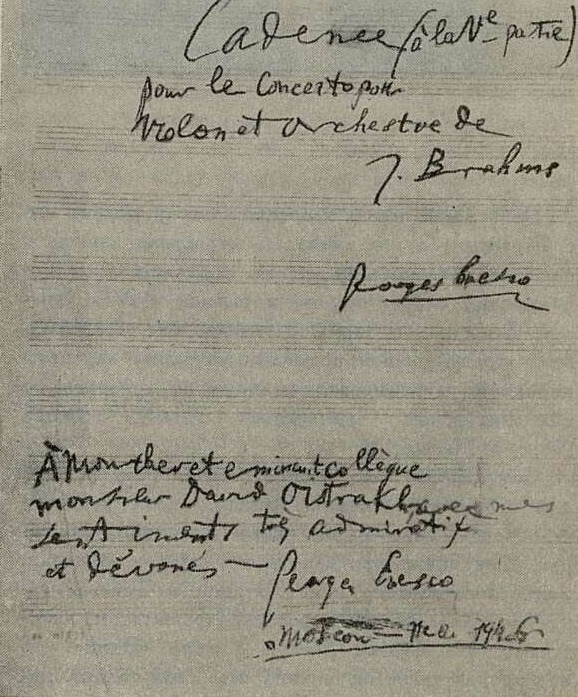 Cadence (à la Ve partie)
pour le Concerto pour
Violon et Orchestre de
J. Brahms
Georges Enesco
À mon cher et eminent collègue
monsieur David Oistrakh avec mes
sentiments très admiratifs
et dévoués —
Georges Enesco
Moscou — 1946